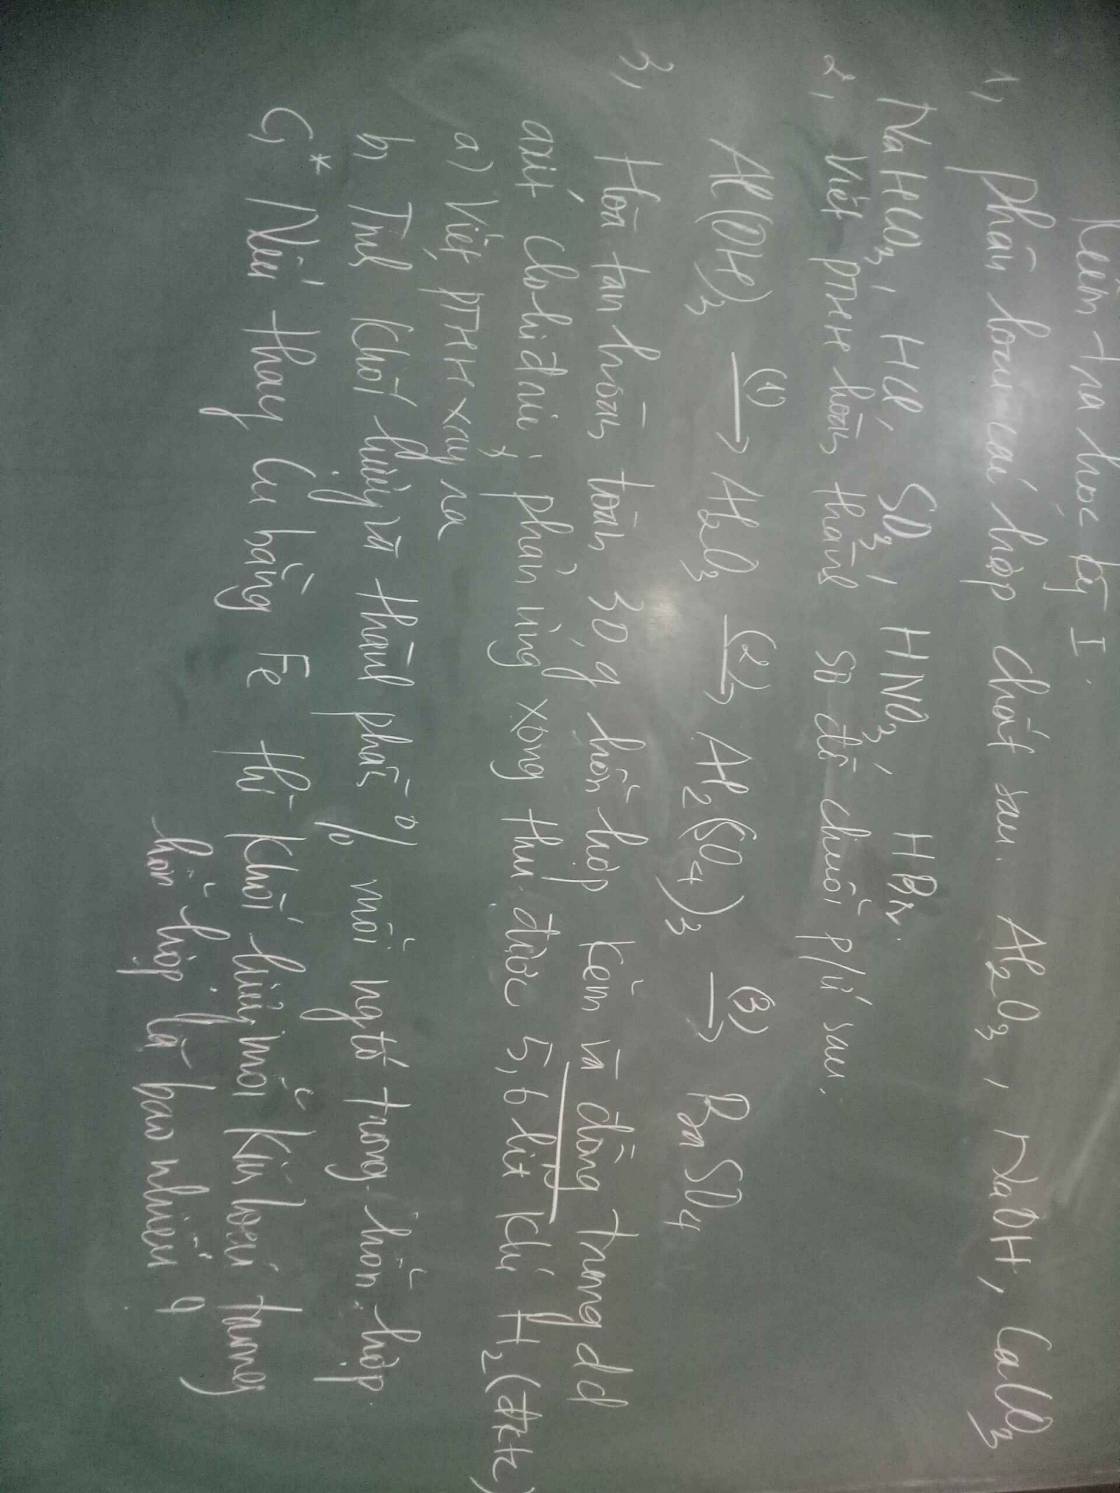 Kiểm tra học kỳ I
1, Phân loại các hợp chất sau. Al2O3, NaOH, CaCO3
NaHCO3, HCl, SO3, HNO3, HBr.
2, Viết PTHH hoàn thành sơ đồ chuỗi p/ứ sau.
Al(OH)3 (1)→ Al2O3 (2)→ Al2(SO4)3 (3)→ BaSO4
3, Hòa tan hoàn toàn 30g hỗn hợp kẽm và đồng trong dd
axit clohiđric, phản ứng xong thu được 5,6 lít khí H2 (đktc)
a) Viết PTHH xảy ra
b, Tính khối lượng và thành phần % mỗi ngtố trong hỗn hợp.
C, * Nếu thay Cu bằng Fe thì khối lượng mỗi kim loại trong
hỗn hợp là bao nhiêu g